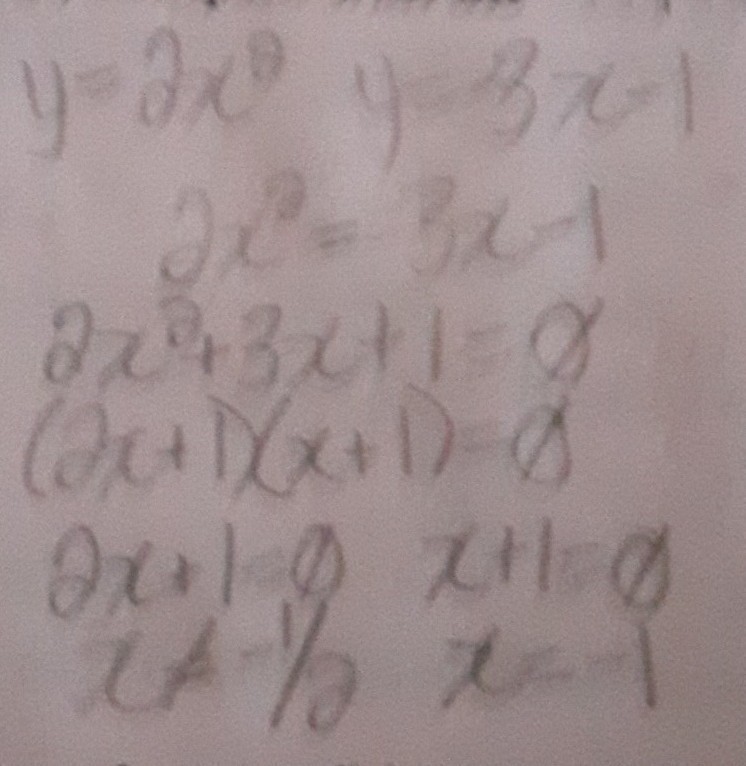 y = 2x² y = -3x - 1
2x² = -3x - 1
2x² + 3x + 1 = 0
(2x + 1)(x + 1) = 0
2x + 1 = 0 x + 1 = 0
x = -1/2 x = -1